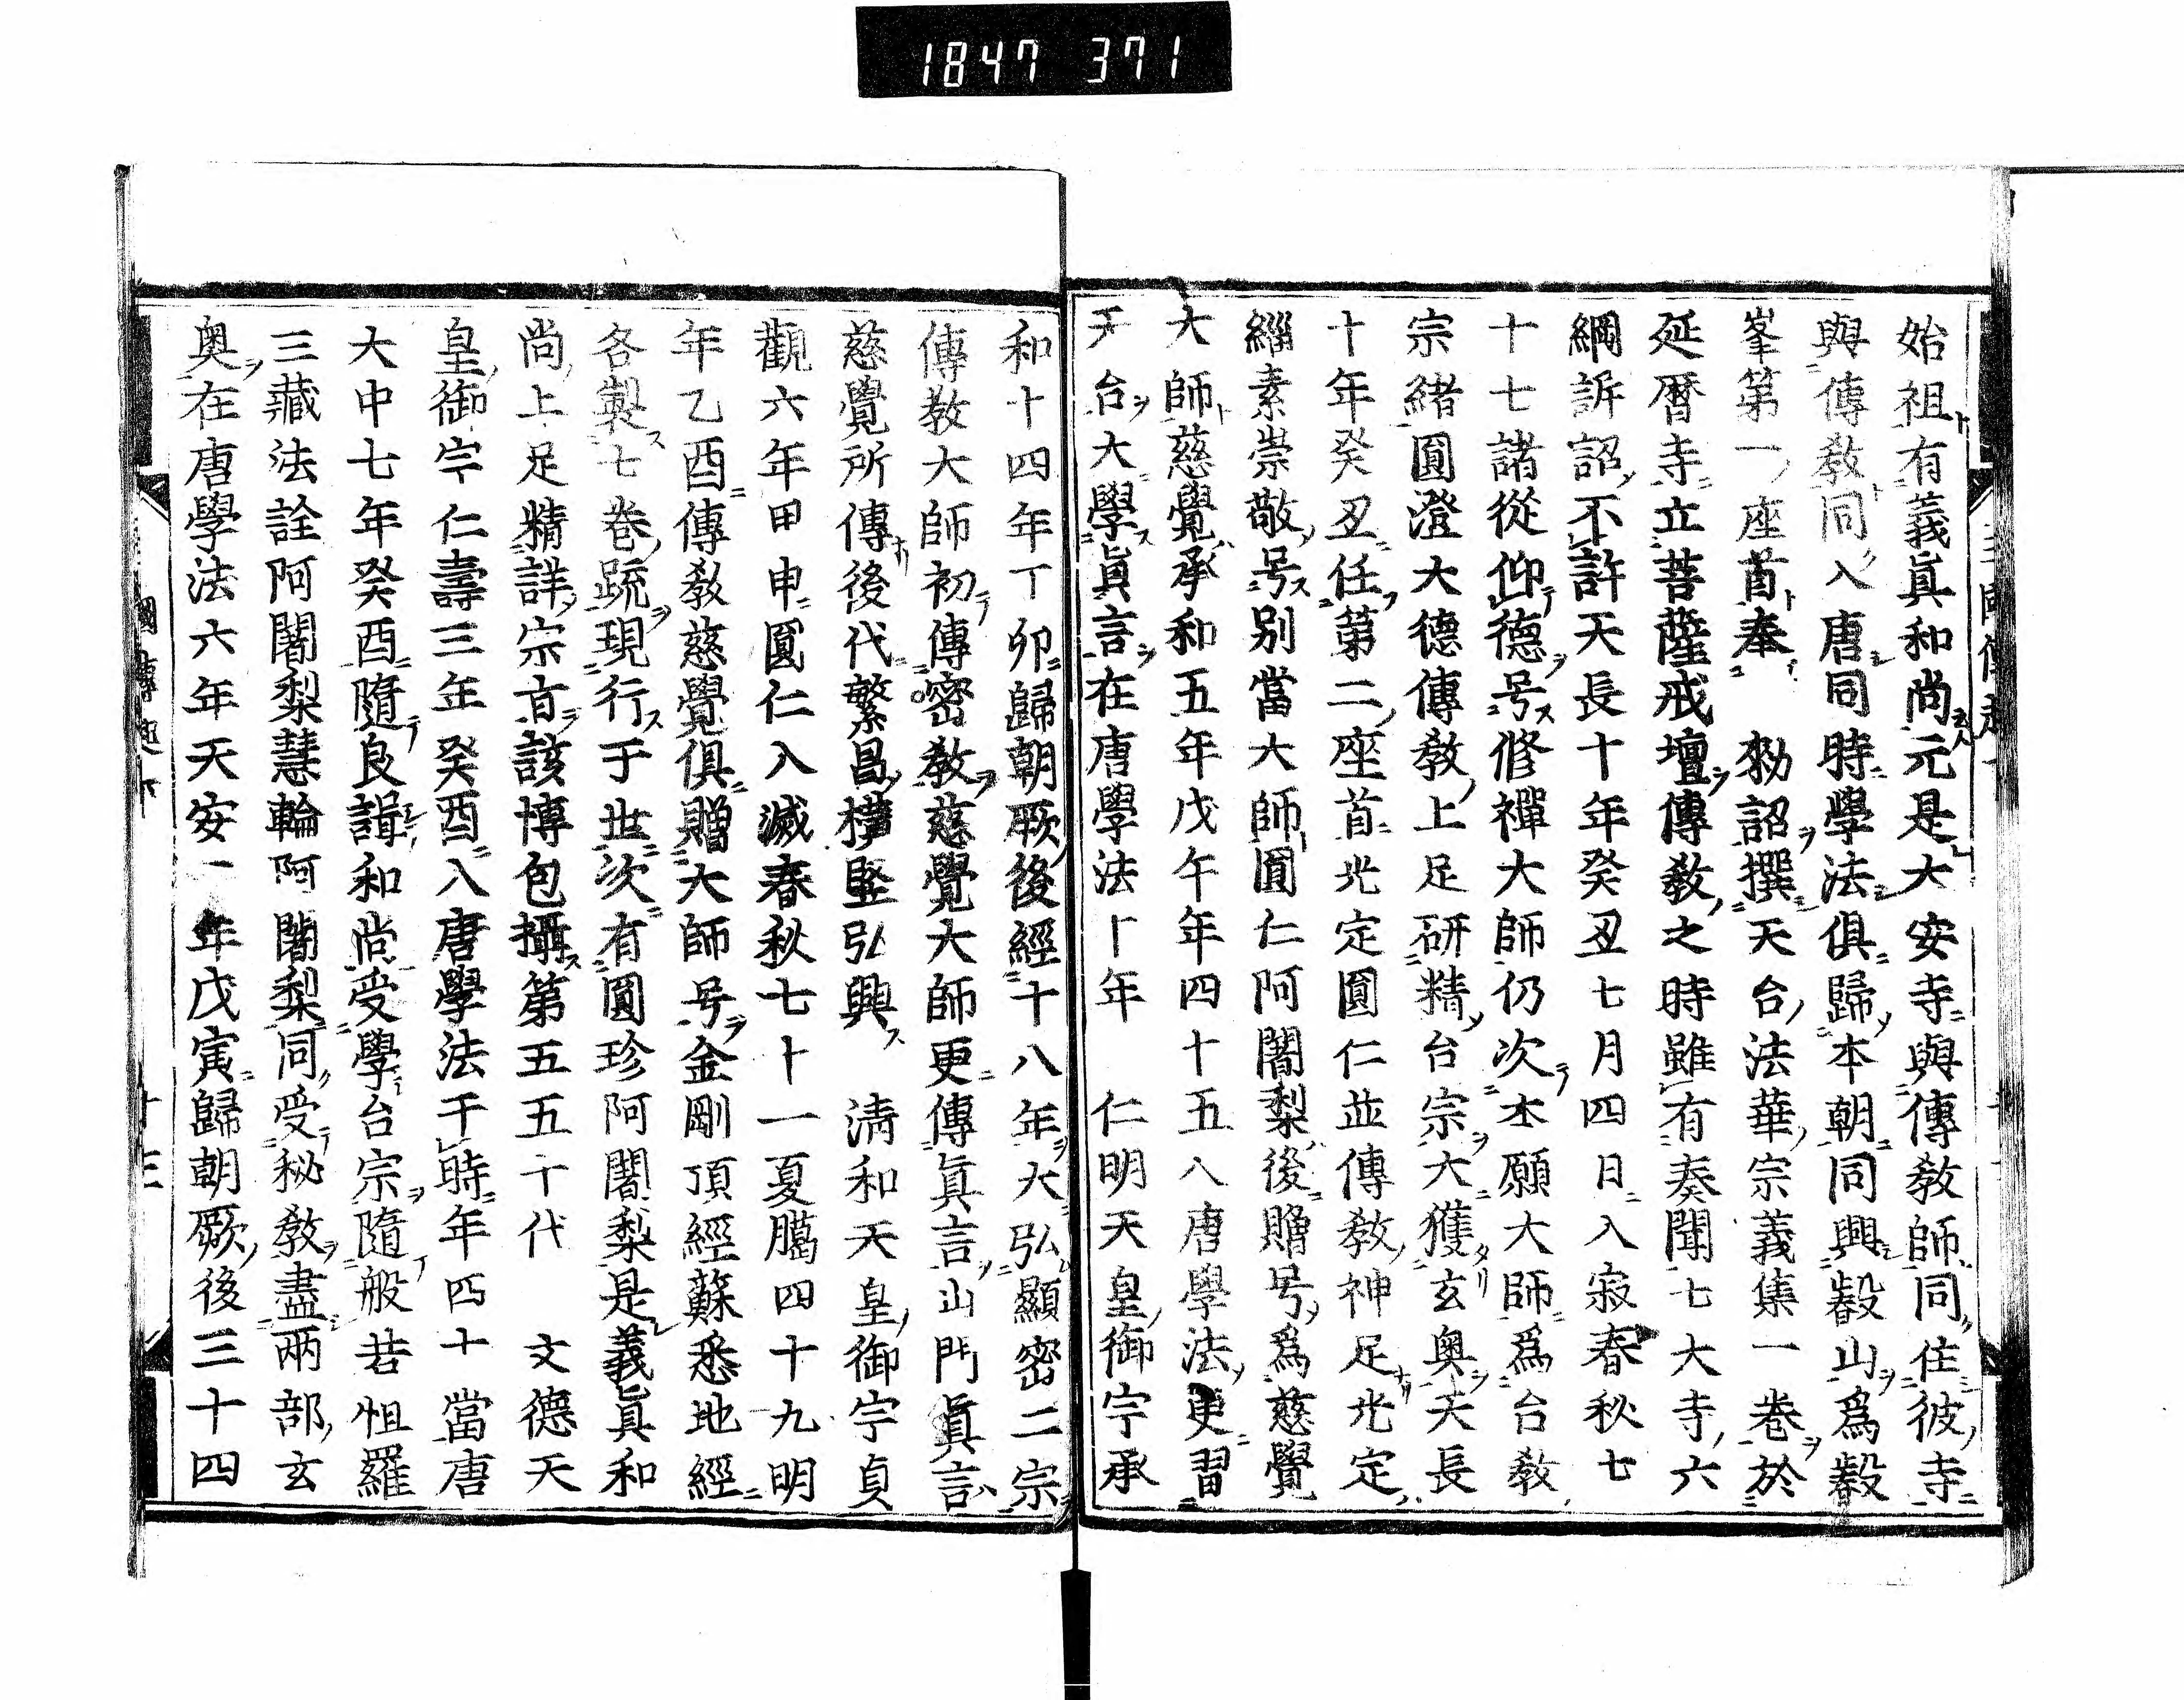 1847 371
始祖有義眞和尚元是大安寺與傳教師同住彼寺
與傳教同入唐同時學法俱歸本朝同興叡山爲叡
峯第一座首奉　勑詔撰天台法華宗義集一卷於
延曆寺立菩薩戒壇傳教之時雖有奏聞七大寺六
綱訴詔不許天長十年癸丑七月四日入寂春秋七
十七諸從仰德号修禪大師仍次本願大師爲台教
宗緒圓澄大德傳教上足研精台宗大獲玄奧天長
十年癸丑任第二座首光定圓仁並傳教神足光定
緇素崇敬号別當大師圓仁阿闍梨後贈号爲慈覺
大師慈覺承和五年戊午年四十五入唐學法更習
天台大學眞言在唐學法十年　仁明天皇御宇承
和十四年丁卯歸朝厥後經十八年大弘顯密二宗
傳教大師初傳密教慈覺大師更傳眞言山門眞言
慈覺所傳後代繁昌橫竪弘興　淸和天皇御宇貞
觀六年甲申圓仁入滅春秋七十一夏臈四十九明
年乙酉傳教慈覺俱贈大師号金剛頂經蘇悉地經
各製七卷疏現行于世次有圓珍阿闍梨是義眞和
尚上足精詳宗旨該博包攝第五五十代　文德天
皇御宇仁壽三年癸酉入唐學法于時年四十當唐
大中七年癸酉隨良諝和尚受學台宗隨般若怛羅
三藏法詮阿闍梨慧輪阿闍梨同受秘教盡兩部玄
奧在唐學法六年天安二年戊寅歸朝厥後三十四